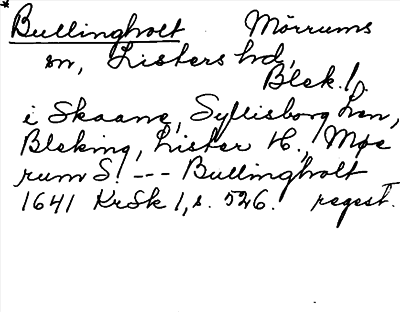 Bullingholt Mörrums
sn, Listers hd,
Blek. l.
i Skaane, Syllisborg Len,
Bleking, Lister H., Møe
rum S. --- Bullingholt
1641 KrSk 1, s. 526. regest.